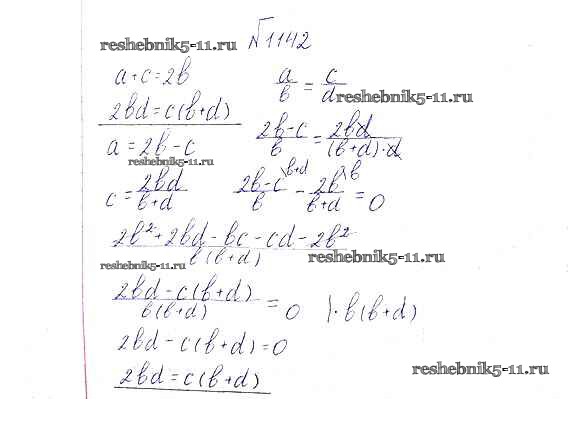 reshebnik5-11.ru №1142
a+c=2b a/b = c/d
reshebnik5-11.ru
2bd=c(b+d)
a=2b-c (2b-c)/b = 2bd/((b+d)·d)
reshebnik5-11.ru
c=2bd/(b+d) (2b-c)\b+d/b - 2b\b/(b+d) = 0
(2b²+2bd-bc-cd-2b²)/(b(b+d))
reshebnik5-11.ru reshebnik5-11.ru
(2bd-c(b+d))/(b(b+d)) = 0 |·b(b+d)
2bd-c(b+d)=0
reshebnik5-11.ru
2bd=c(b+d)